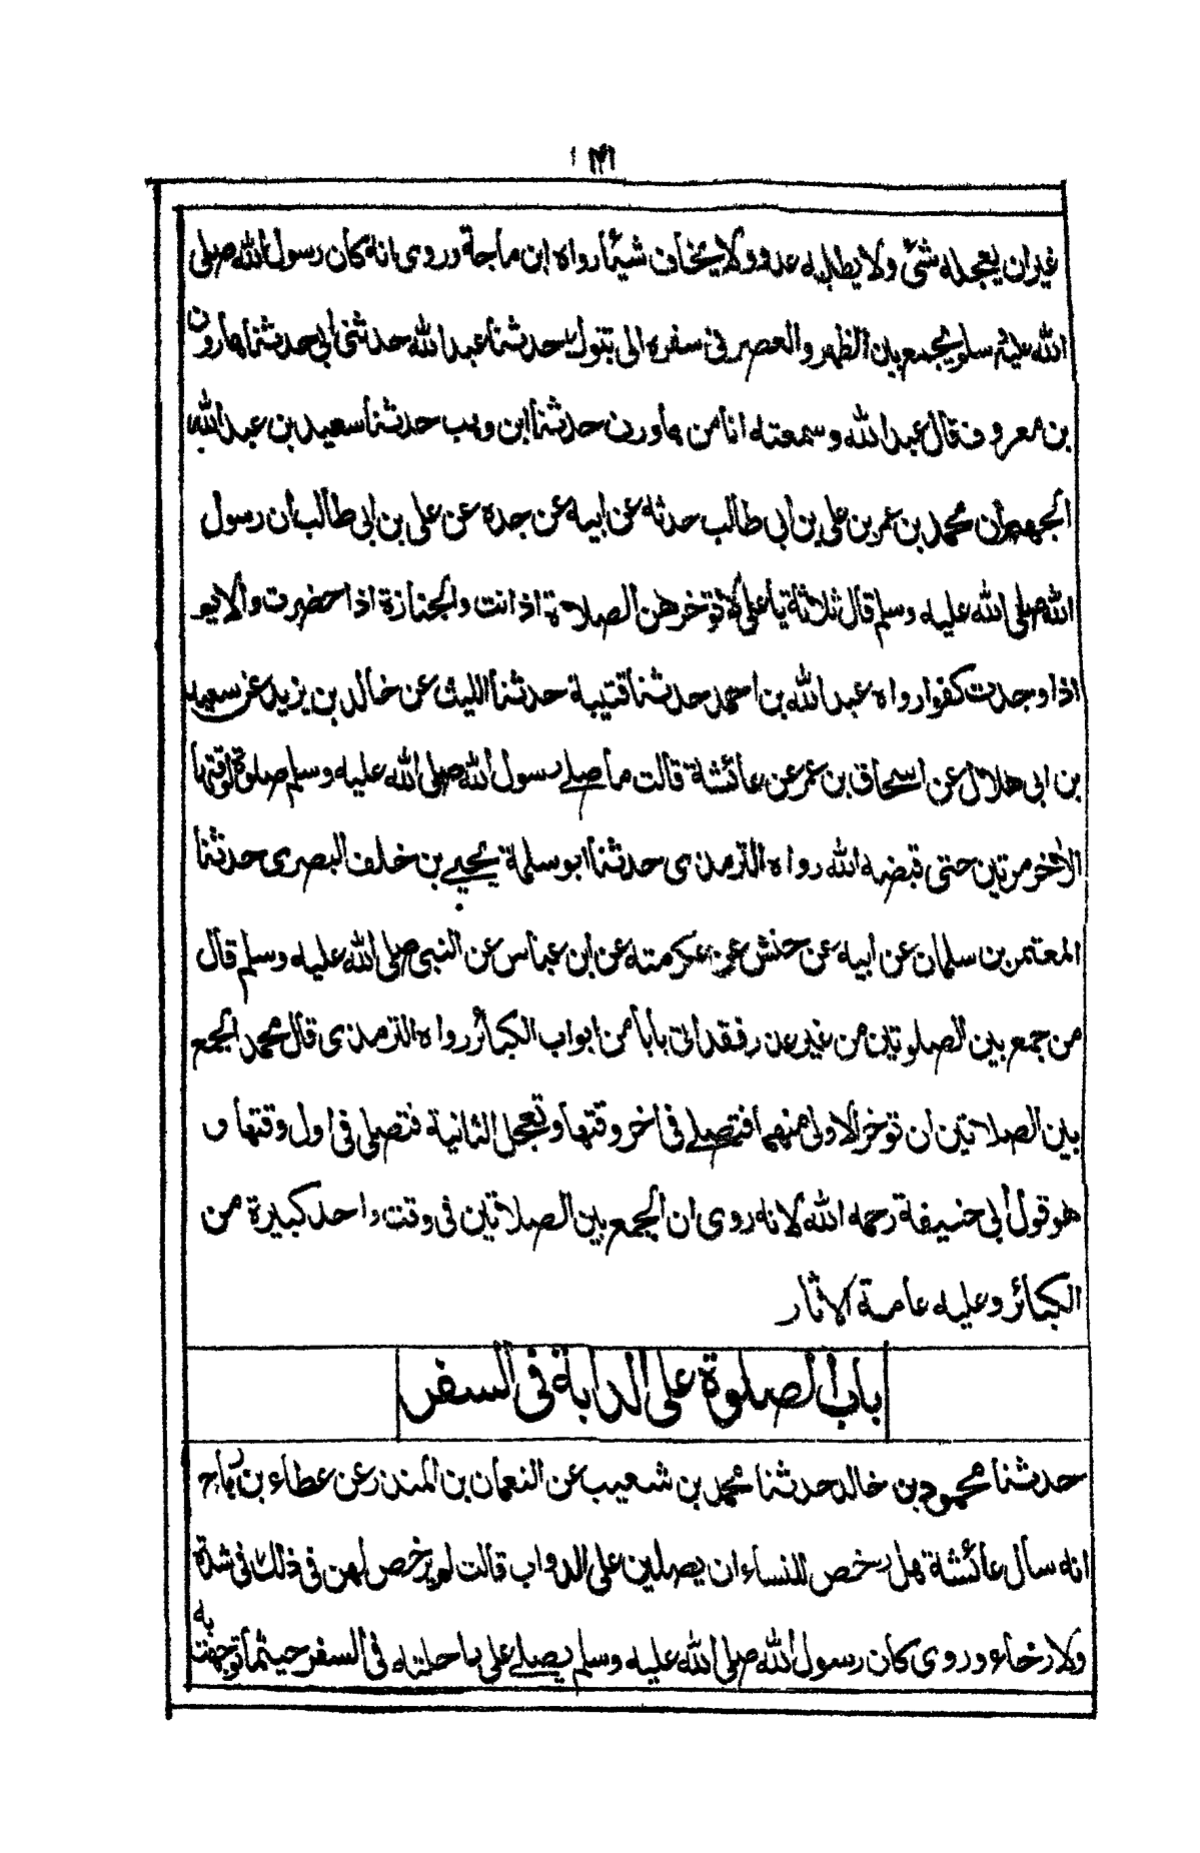 غيران يعجله شئ ولا يطلبه عدو ولا يخاف شيئا رواه ابن ماجة وروى انه كان رسول الله صلى
الله عليه وسلم يجمع بين الظهر والعصر فى سفره الى تبوك حدثنا عبد الله حدثنى ابى حدثنا هارون
بن معروف قال عبد الله وسمعته انا من هاورن حدثنا ابن وهب حدثنا سعيد بن عبد الله
الجهنى ان محمد بن عمر بن على بن ابى طالب حدثه عن ابيه عن جده عن على بن ابى طالب ان رسول
الله صلى الله عليه وسلم قال ثلاثة يا على لا تؤخرهن الصلاة اذا انت والجنازة اذا حضرت والايم
اذا وجدت كفوا رواه عبد الله بن احمد حدثنا قتيبة حدثنا الليث عن خالد بن يزيد عن سعيد
بن ابى هلال عن اسحاق بن عمر عن عائشة قالت ما صلے رسول الله صلى الله عليه وسلم صلوة لوقتها
الاخر مرتين حتى قبضه الله رواه الترمذى حدثنا ابو سلمة يحيے بن خلف البصرى حدثنا
المعتمر بن سلمان عن ابيه عن حنش عن عكرمته عن ابن عباس عن النبى صلى الله عليه وسلم قال
من جمع بين الصلوتين من غير عذر فقد اتى بابا من ابواب الكبائر رواه الترمذى قال محمد الجمع
بين الصلاتين ان توخر الاولى منهما فتصلے فى اخر وقتها وتعجل الثانية فتصلى فى اول وقتها و
هو قول ابى حنيفة رحمه الله لانه روى ان الجمع بين الصلاتين فى وقت واحد كبيرة من
الكبائر وعليه عامة الاثار
باب الصلوة على الدابة فى السفر
حدثنا محمود بن خالد حدثنا محمد بن شعيب عن النعمان بن المنذر عن عطاء بن رباح
انه سأل عائشة هل رخص للنساء ان يصلين على الدواب قالت لم يرخص لهن فى ذلك فى شدة
ولا رخاء وروى كان رسول الله صلى الله عليه وسلم يصلے على راحلته فى السفر حيثما توجهت به